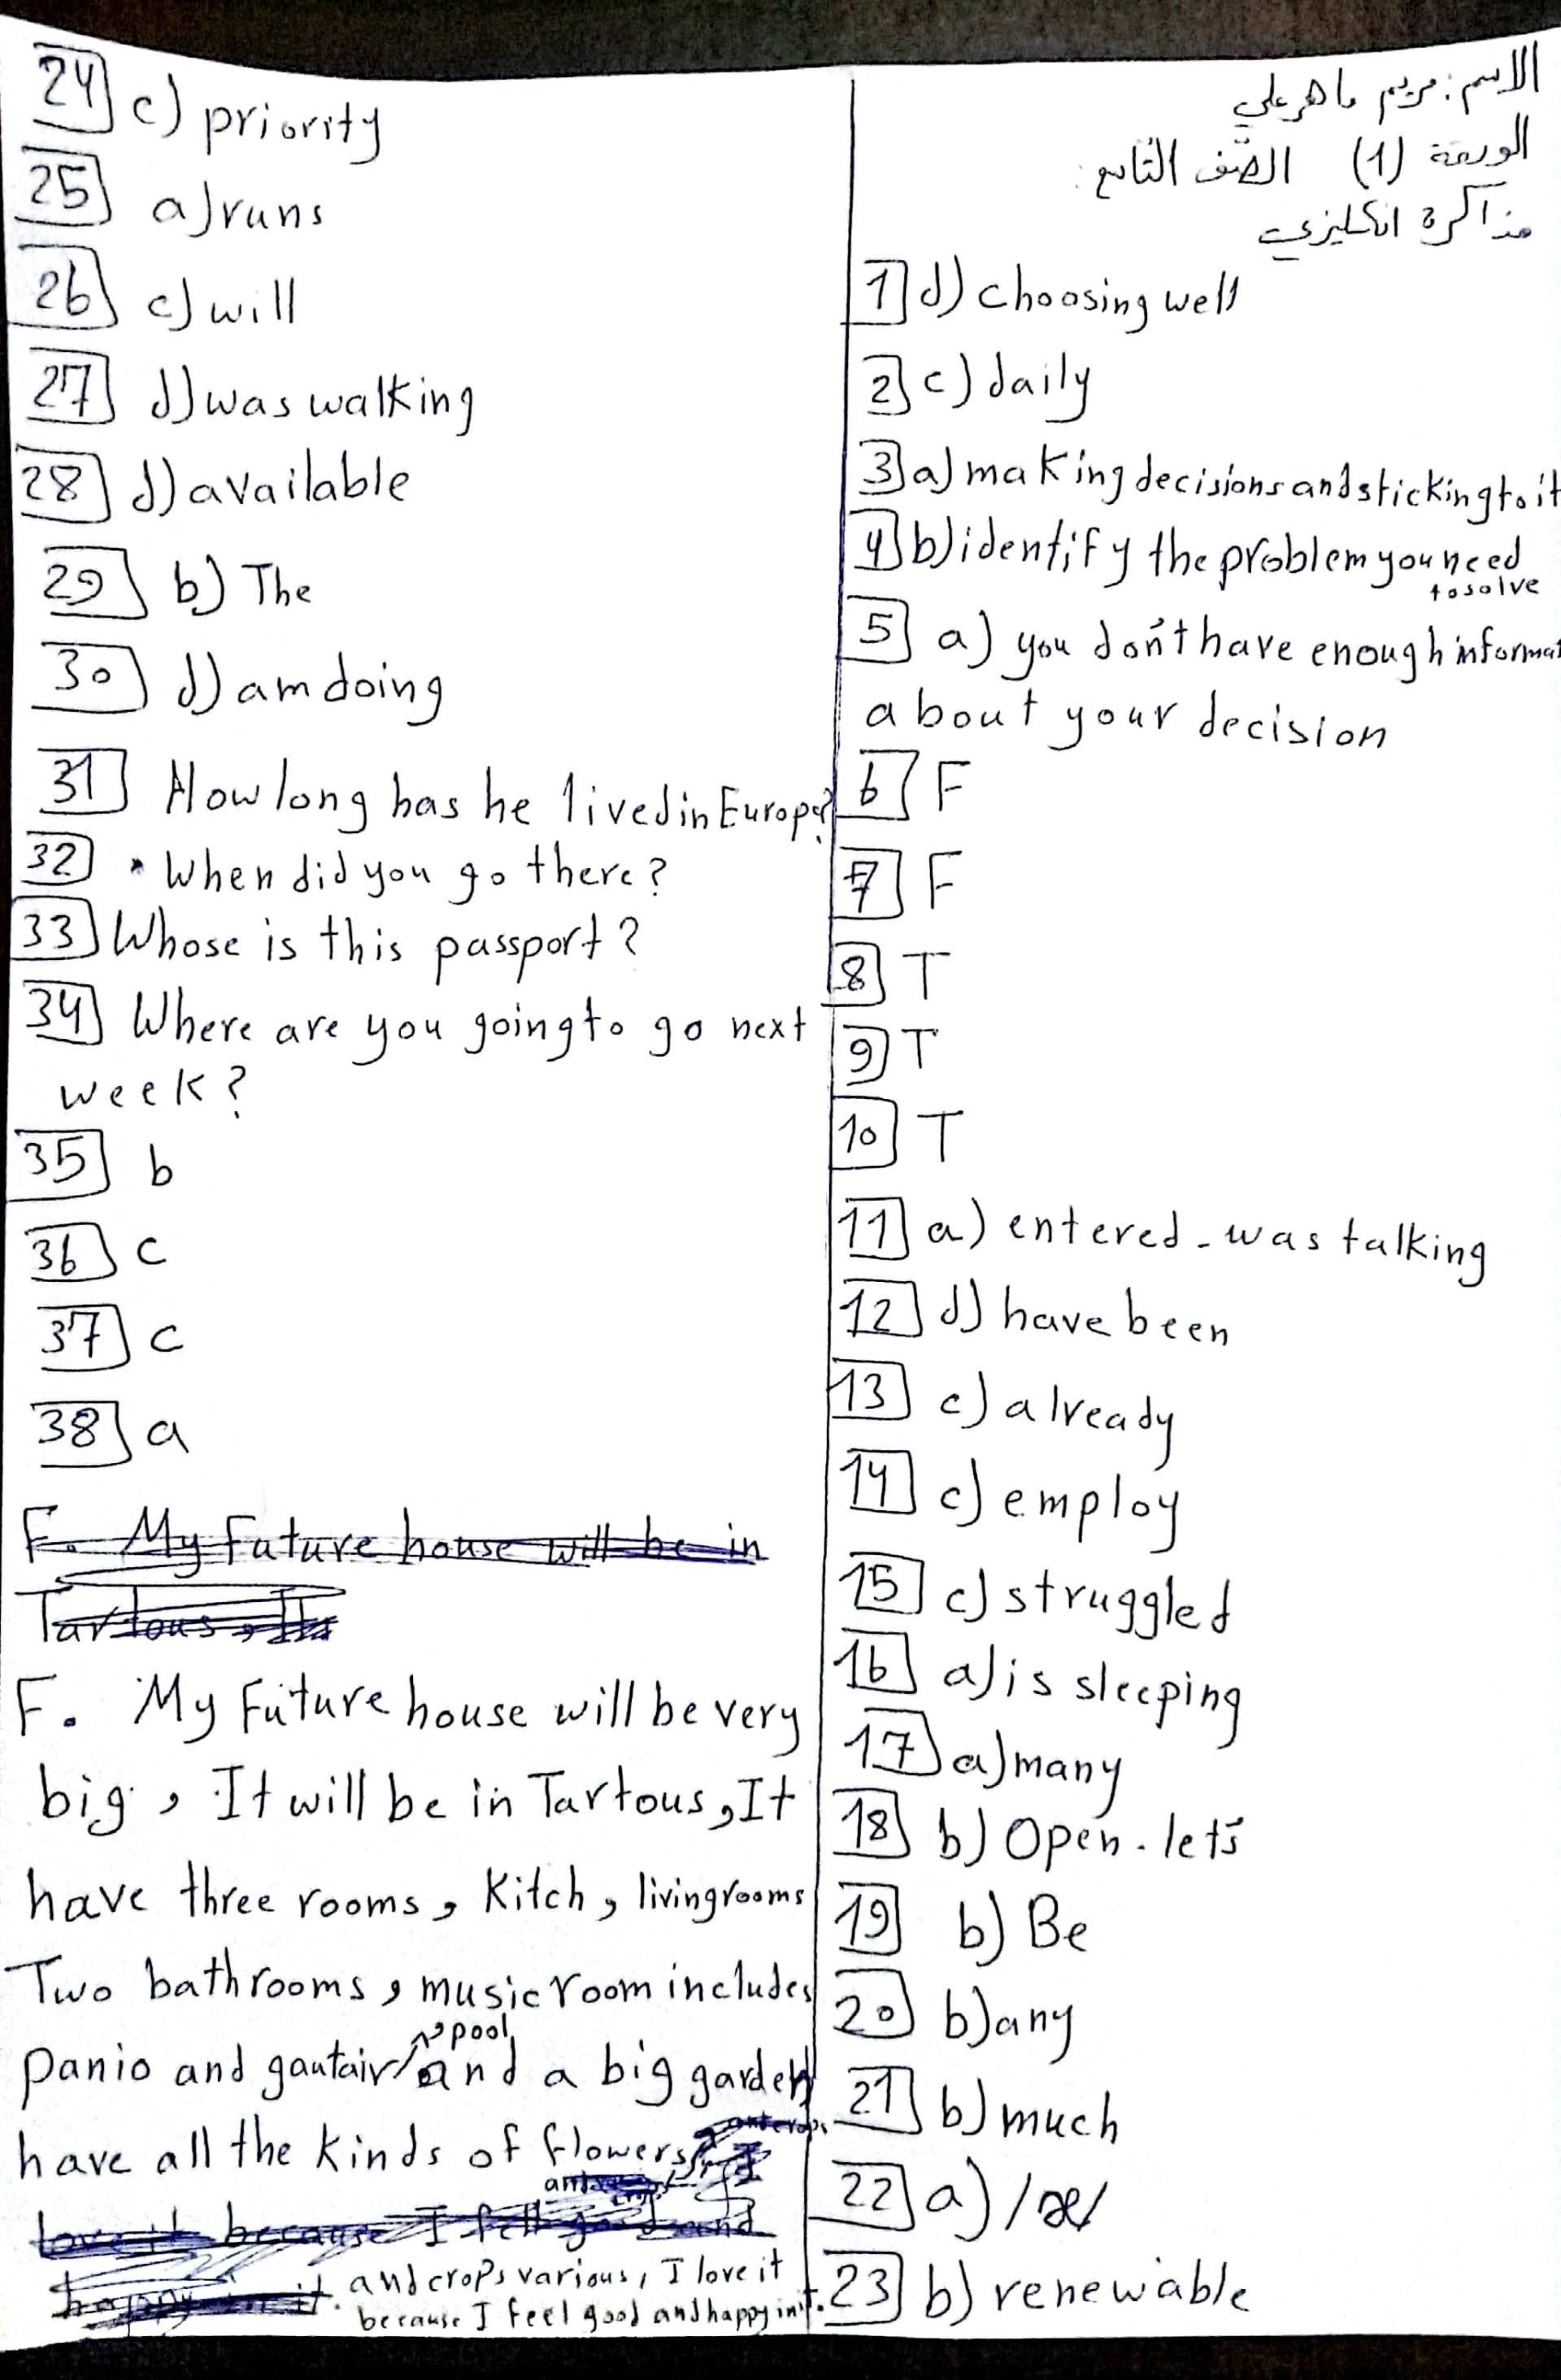 الاسم: مريم ماهر علي
الورقة (1) الصّف التّاسع:
مذاكرة انكليزي
1 d) choosing well
2 c) daily
3 a) making decisions and sticking to it
4 b) identify the problem you need
to solve
5 a) you don't have enough informat
about your decision
6 F
7 F
8 T
9 T
10 T
11 a) entered - was talking
12 d) have been
13 c) already
14 c) employ
15 c) struggled
16 a) is sleeping
17 a) many
18 b) Open - let's
19 b) Be
20 b) any
21 b) much
22 a) /æ/
23 b) renewable
24 c) priority
25 a) runs
26 c) will
27 d) was walking
28 d) available
29 b) The
30 d) am doing
31 How long has he lived in Europe?
32 • When did you go there?
33 Whose is this passport?
34 Where are you going to go next
week?
35 b
36 c
37 c
38 a
F. My future house will be in
Tartous, It
F. My Future house will be very
big, It will be in Tartous, It
have three rooms, Kitch, living rooms
Two bathrooms, music room includes
panio and gautair, pool, and a big garden
have all the kinds of flowers
love it because I fell good and
happy in it.
and crops various, I love it
because I feel good and happy in it.